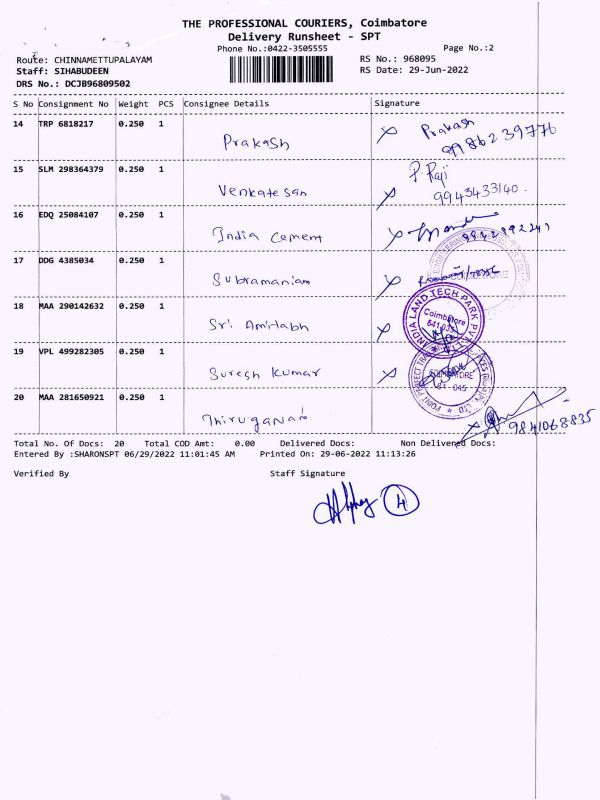 THE PROFESSIONAL COURIERS, Coimbatore
Delivery Runsheet - SPT
Phone No.:0422-3505555
Page No.:2
Route: CHINNAMETTUPALAYAM
RS No.: 968095
Staff: SIHABUDEEN
RS Date: 29-Jun-2022
DRS No.: DCJB96809502
S No Consignment No Weight PCS Consignee Details Signature
14 TRP 6818217 0.250 1 Prakash Prakash
9986239776
15 SLM 298364379 0.250 1 Venkatesan P. Raji
9943433140.
16 EDQ 25084107 0.250 1 India Cement
17 DDG 4385034 0.250 1 Subramaniam
COIMBATORE
18 MAA 290142632 0.250 1 Sri Amirtabh
INDIA LAND TECH PARK PVT
Coimbatore
19 VPL 499282305 0.250 1 Suresh Kumar
20 MAA 281650921 0.250 1 Thiruganam
9841068835
Total No. Of Docs: 20 Total COD Amt: 0.00 Delivered Docs: Non Delivered Docs:
Entered By :SHARONSPT 06/29/2022 11:01:45 AM Printed On: 29-06-2022 11:13:26
Verified By Staff Signature
4